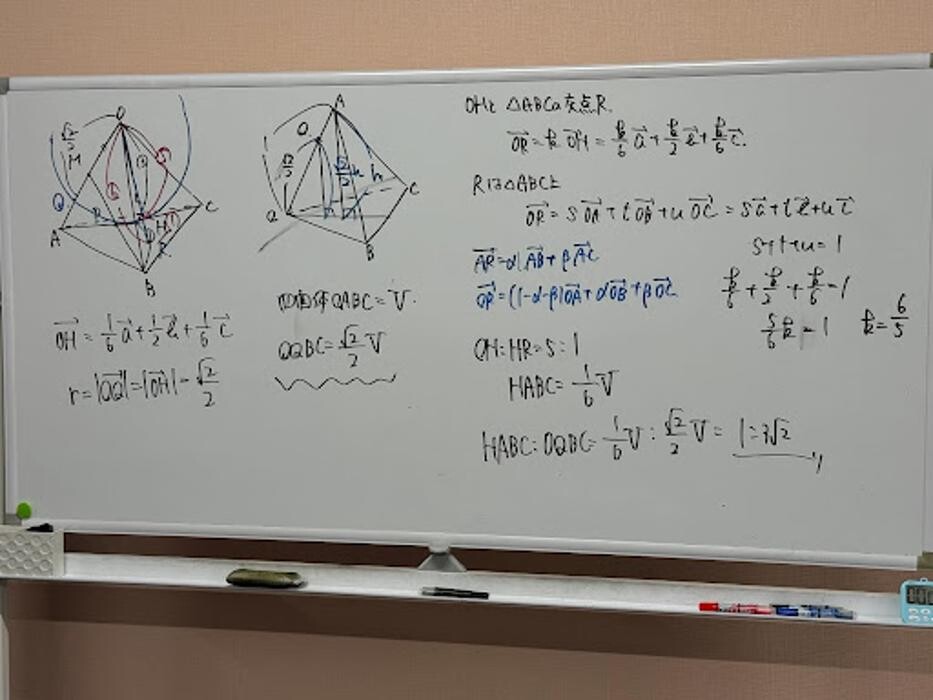 O
√2/2
M
Q
A
C
B
H
A
O
√2/2
Q
C
B
h
OH→ = 1/6 a→ + 1/2 b→ + 1/6 c→
r = |OQ→| = |OH→| = √2/2
四面体OABC = V.
OQBC = √2/2 V
OHと △ABCの交点R.
OR→ = k OH→ = k/6 a→ + k/2 b→ + k/6 c→.
Rは△ABC上
OR→ = s OA→ + t OB→ + u OC→ = s a→ + t b→ + u c→
s+t+u = 1
AR→ = α AB→ + β AC→
OR→ = (1-α-β)OA→ + αOB→ + βOC→
k/6 + k/2 + k/6 = 1
5/6 k = 1 k = 6/5
OH:HR = 5:1
HABC = 1/6 V
HABC:OQBC = 1/6 V : √2/2 V = 1:3√2